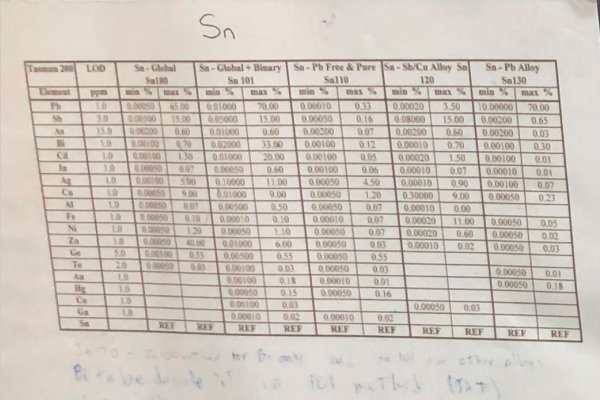 Sn
Tasman 200 LOD Sn - Global Sn - Global + Binary Sn - Pb Free & Pure Sn - Sb/Cu Alloy Sn Sn - Pb Alloy
Sn100 Sn 101 Sn110 120 Sn130
Element ppm min % max % min % max % min % max % min % max % min % max %
Pb 1.0 0.00050 65.00 0.01000 70.00 0.00010 0.33 0.00020 3.50 10.00000 70.00
Sb 3.0 0.00500 15.00 0.05000 15.00 0.00050 0.16 0.08000 15.00 0.00200 0.65
As 15.0 0.00200 0.60 0.01000 0.60 0.00200 0.07 0.00200 0.60 0.00200 0.03
Bi 1.0 0.00100 0.70 0.02000 33.00 0.00100 0.12 0.00010 0.70 0.00100 0.30
Cd 1.0 0.00100 1.30 0.01000 20.00 0.00100 0.05 0.00020 1.50 0.00100 0.01
In 1.0 0.00050 0.07 0.00050 0.60 0.00100 0.06 0.00010 0.07 0.00010 0.01
Ag 1.0 0.00100 5.00 0.10000 11.00 0.00050 4.50 0.00010 0.90 0.00100 0.07
Cu 1.0 0.00050 9.00 0.01000 9.00 0.00050 1.20 0.30000 9.00 0.00050 0.23
Al 1.0 0.00050 0.07 0.00500 0.50 0.00050 0.07 0.00010 0.00
Fe 1.0 0.00050 0.10 0.00010 0.10 0.00010 0.07 0.00020 11.00 0.00050 0.05
Ni 1.0 0.00050 1.20 0.00050 1.10 0.00050 0.07 0.00020 0.60 0.00050 0.02
Zn 1.0 0.00050 40.00 0.01000 6.00 0.00050 0.03 0.00010 0.02 0.00050 0.03
Ge 5.0 0.00100 0.55 0.00500 0.55 0.00050 0.55
Te 2.0 0.00050 0.03 0.00100 0.03 0.00050 0.03 0.00050 0.01
Au 1.0 0.00100 0.18 0.00010 0.01 0.00050 0.18
Hg 1.0 0.00050 0.15 0.00050 0.16
Co 1.0 0.00100 0.03 0.00050 0.03
Ga 1.0 0.00010 0.02 0.00010 0.02
Sn REF REF REF REF REF REF REF REF REF REF
for Bi only other
Bi to be method